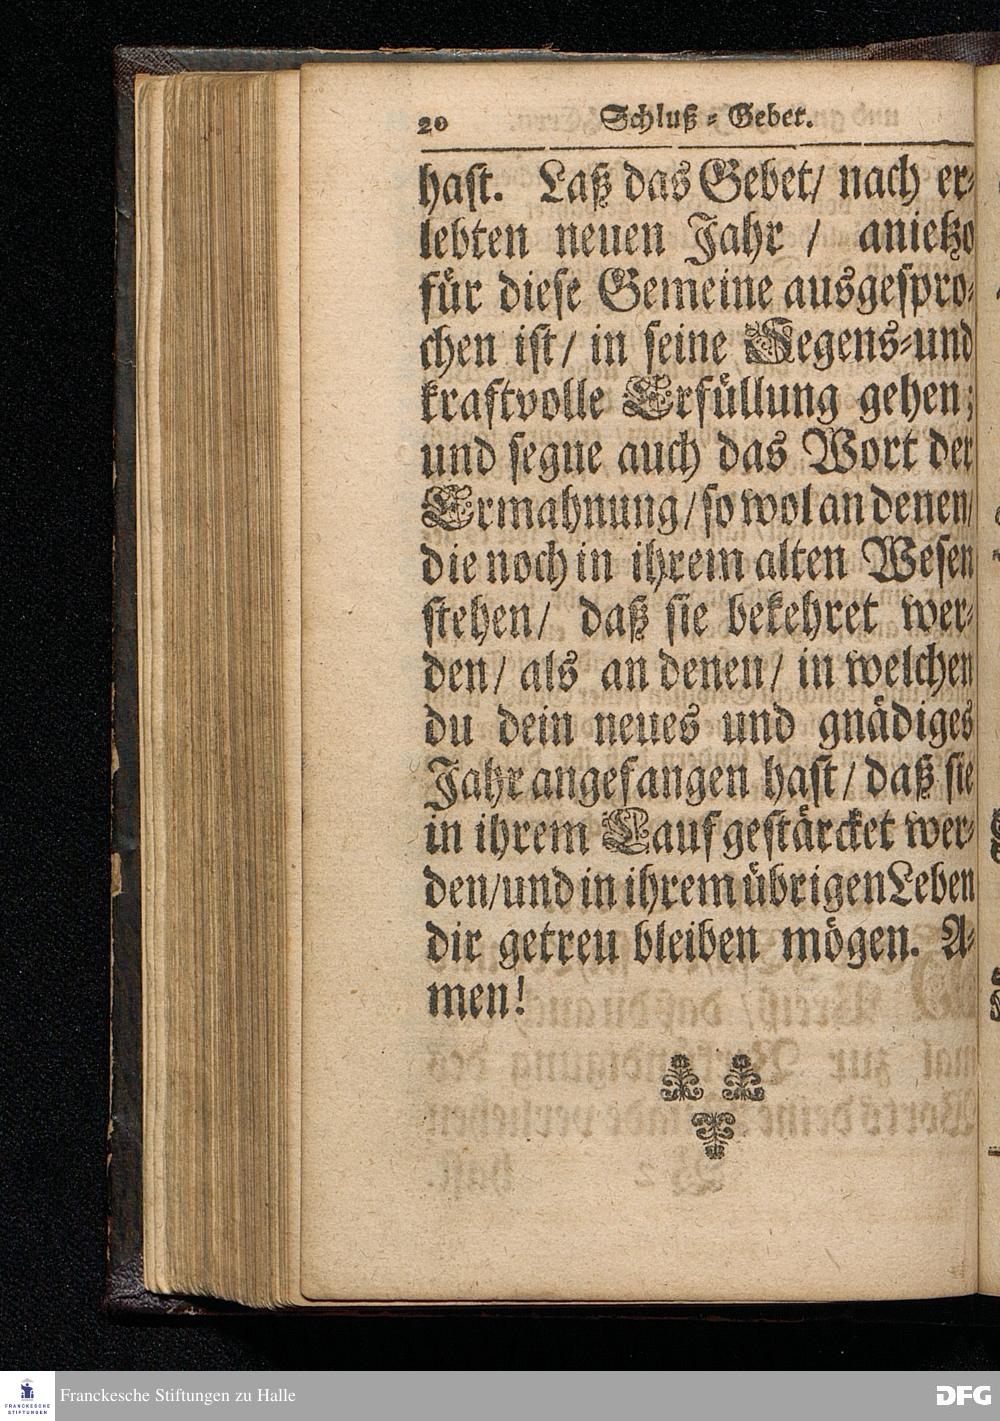 20 Schluß-Gebet.
hast. Laß das Gebet/ nach er-
lebten neuen Jahr / anietzo
für diese Gemeine ausgespro-
chen ist/ in seine Segens-und
kraftvolle Erfüllung gehen;
und segne auch das Wort der
Ermahnung/ so wol an denen/
die noch in ihrem alten Wesen
stehen/ daß sie bekehret wer-
den/ als an denen/ in welchen
du dein neues und gnädiges
Jahr angefangen hast/ daß sie
in ihrem Lauf gestärcket wer-
den/ und in ihrem übrigen Leben
dir getreu bleiben mögen. A-
men!
FRANCKESCHE
STIFTUNGEN
Franckesche Stiftungen zu Halle
DFG